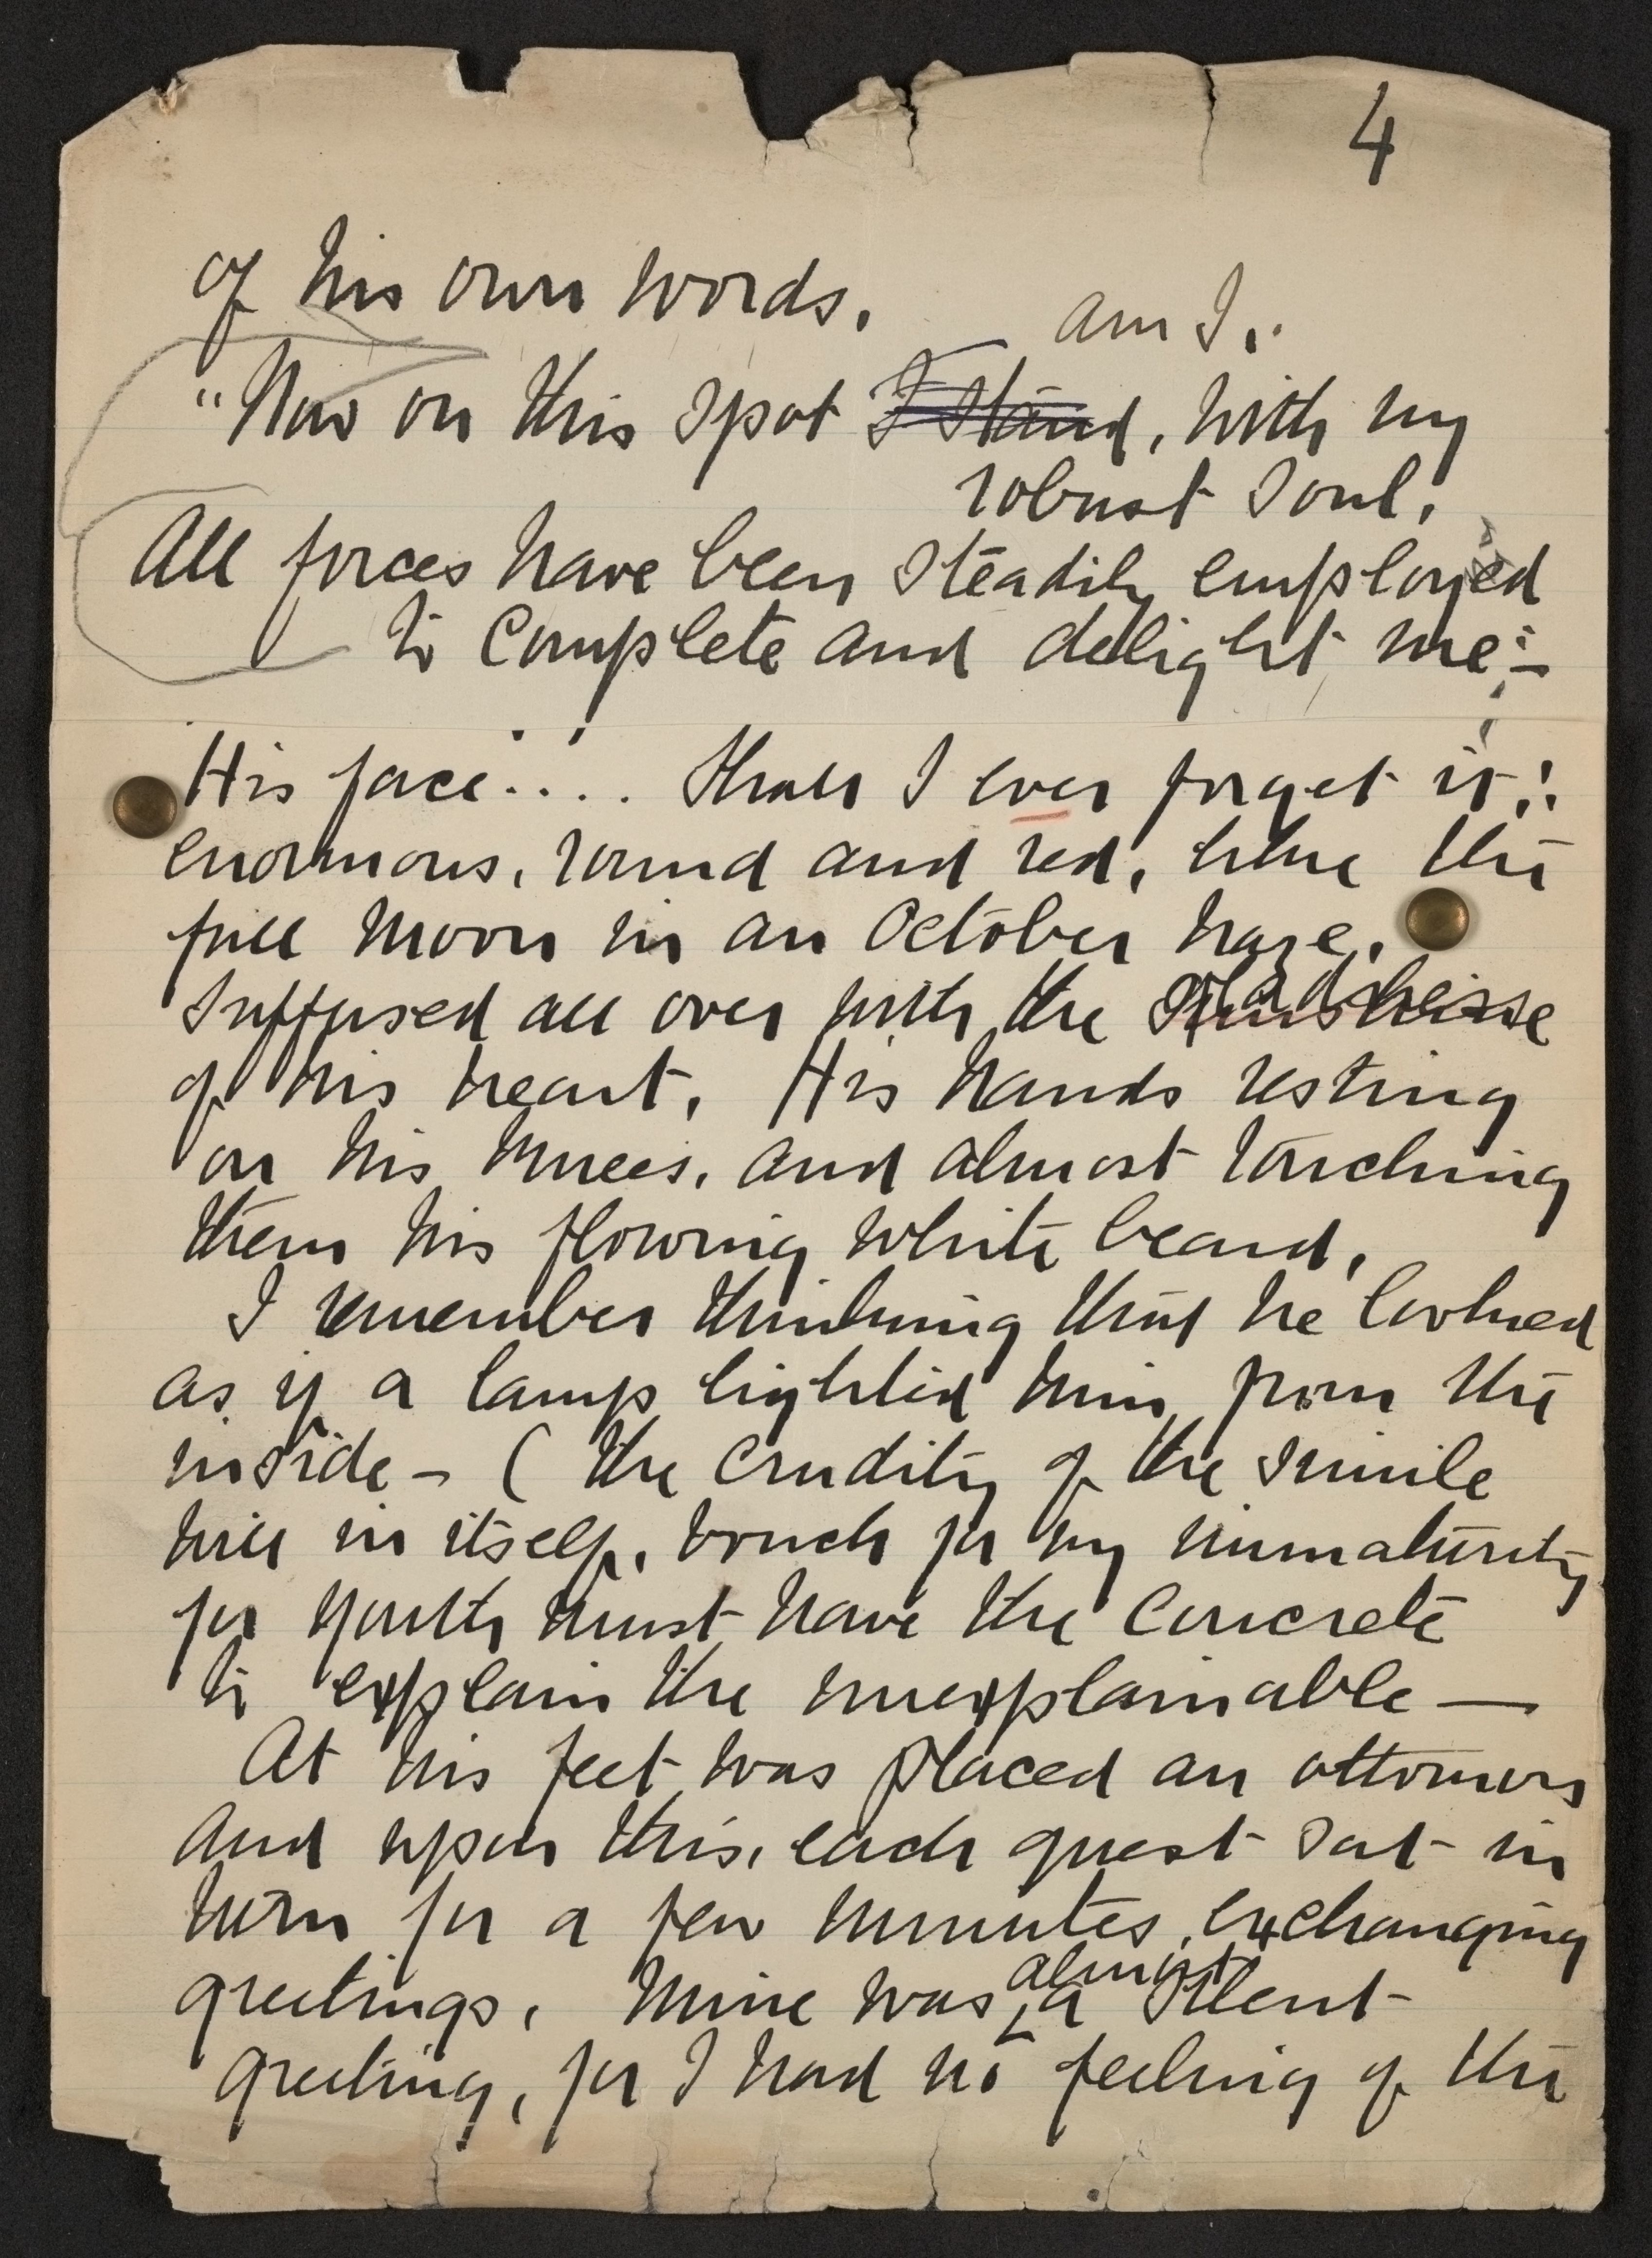 4
of his own words.
am I..
"Now on this spot I stand, with my
robust soul.
All forces have been steadily employed
to complete and delight me:-
His face.... Shall I ever forget it!
enormous, round and red, like the
full moon in an October haze.
Suffused all over with the
of his heart. His hands resting
on his knees, and almost touching
them his flowing white beard.
I remember thinking that he looked
as if a lamp lighted him from the
inside - ( the crudity of the simile
will in itself, vouch for my immaturity
for youth must have the concrete
to explain the unexplainable —
At his feet was placed an ottoman
and upon this, each guest sat in
turn for a few minutes, exchanging
almost
greetings. Mine was a silent
greeting, for I had no feeling of the